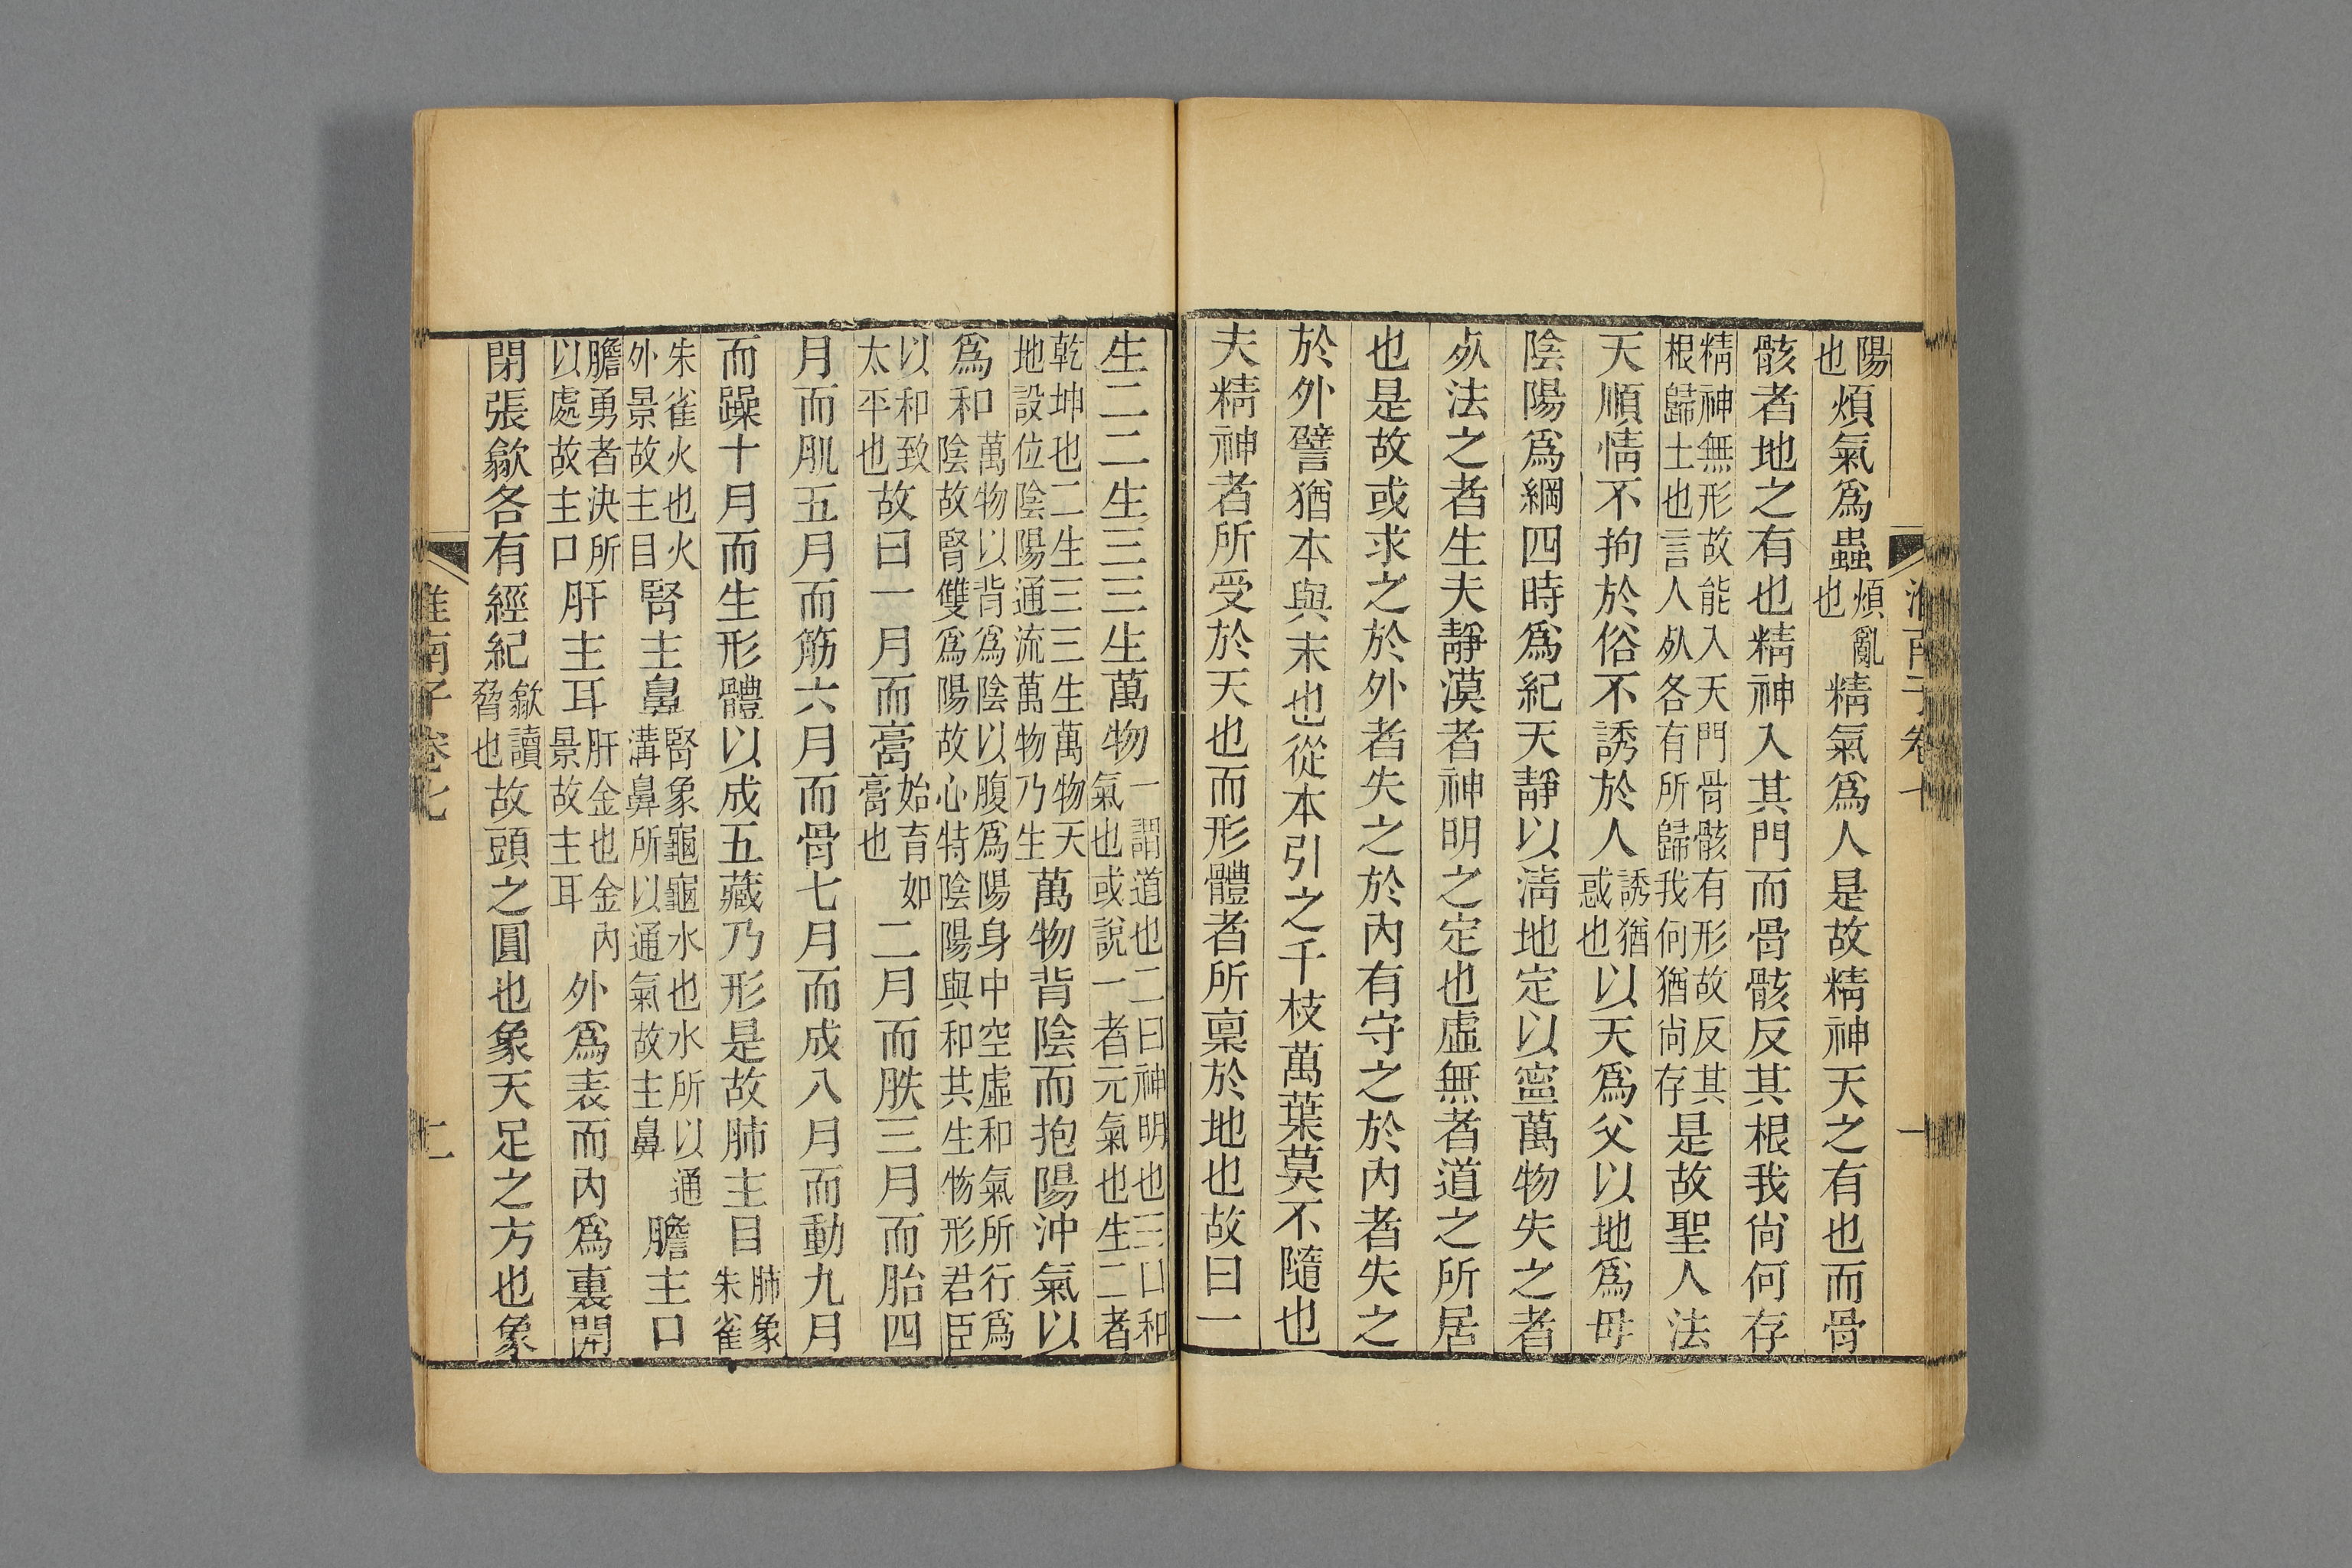 淮南子卷七 一
陽也煩氣爲蟲煩亂也精氣爲人是故精神天之有也而骨
骸者地之有也精神入其門而骨骸反其根我尙何存
精神無形故能入天門骨骸有形故反其根歸土也言人死各有所歸我何猶尙存是故聖人法
天順情不拘於俗不誘於人誘猶惑也以天爲父以地爲母
陰陽爲綱四時爲紀天靜以淸地定以寧萬物失之者
死法之者生夫靜漠者神明之定也虛無者道之所居
也是故或求之於外者失之於內有守之於內者失之
於外譬猶本與末也從本引之千枝萬葉莫不隨也
夫精神者所受於天也而形體者所稟於地也故曰一
生二二生三三生萬物一謂道也二曰神明也三曰和氣也或說一者元氣也生二者
乾坤也二生三三生萬物天地設位陰陽通流萬物乃生萬物背陰而抱陽沖氣以
爲和萬物以背爲陰以腹爲陽身中空虛和氣所行爲陰故腎雙爲陽故心特陰陽與和共生物形君臣
以和致太平也故曰一月而膏始育如膏也二月而胅三月而胎四
月而肌五月而筋六月而骨七月而成八月而動九月
而躁十月而生形體以成五藏乃形是故肺主目肺象朱雀
朱雀火也火外景故主目腎主鼻腎象龜龜水也水所以通溝鼻所以通氣故主鼻膽主口
膽勇者決所以處故主口肝主耳肝金也金內景故主耳外爲表而內爲裏開
閉張歙各有經紀歙讀脅也故頭之圓也象天足之方也象
淮南子卷七 二